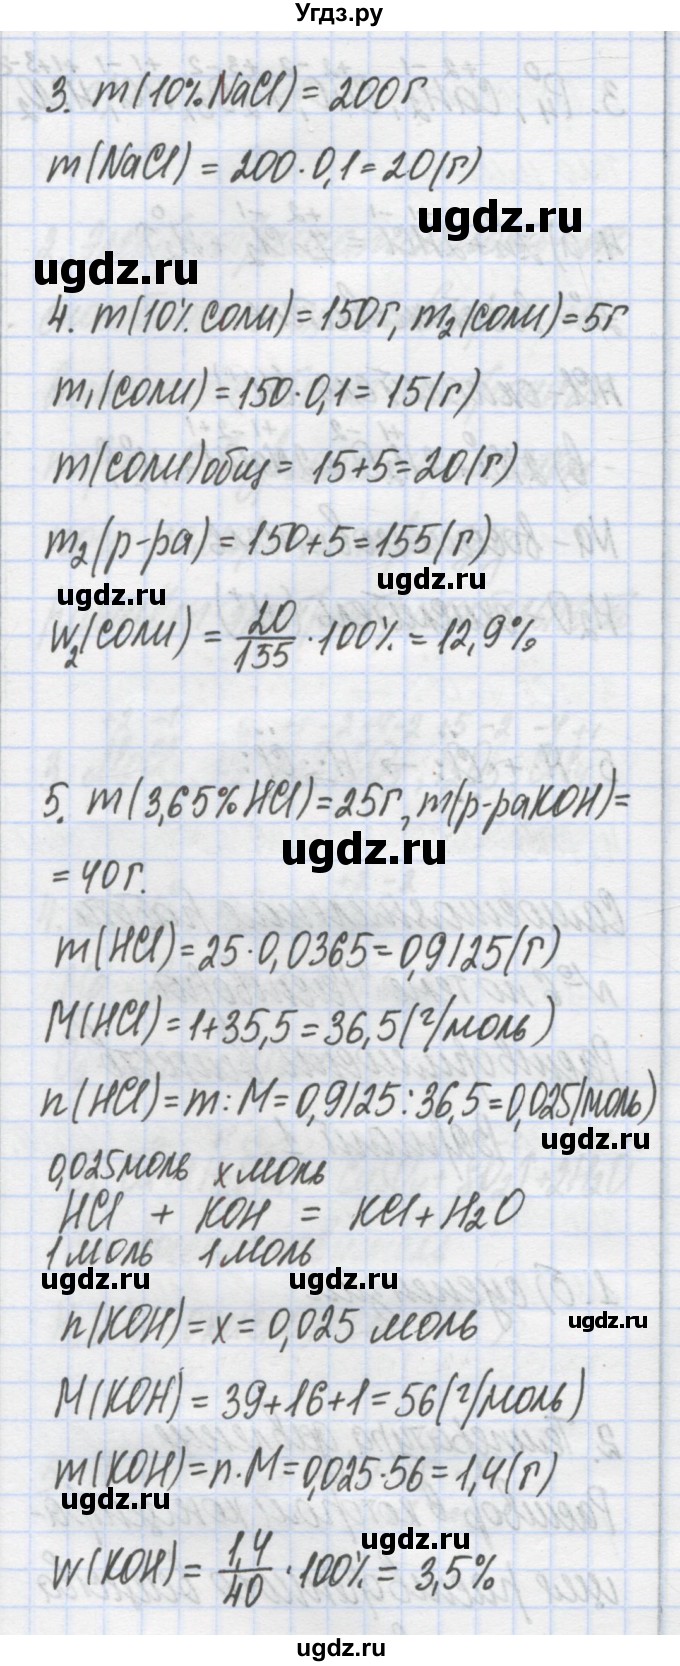 Угдз.ру
3. m(10% NaCl) = 200г
m(NaCl) = 200·0,1 = 20(г)
ugdz.ru
ugdz.ru
4. m(10% соли) = 150г, m₂(соли) = 5г
m₁(соли) = 150·0,1 = 15(г)
m(соли)общ = 15+5 = 20(г)
m₂(р-ра) = 150+5 = 155(г)
ugdz.ru ugdz.ru
W₂(соли) = 20/155 · 100% = 12,9%
5. m(3,65% HCl) = 25г, m(р-ра KOH) =
ugdz.ru
= 40г.
m(HCl) = 25·0,0365 = 0,9125(г)
M(HCl) = 1+35,5 = 36,5(г/моль)
n(HCl) = m:M = 0,9125:36,5 = 0,025(моль)
ugdz.ru
0,025моль x моль
HCl + KOH = KCl + H₂O
1 моль 1 моль
ugdz.ru ugdz.ru
ugdz.ru
n(KOH) = x = 0,025 моль
M(KOH) = 39+16+1 = 56(г/моль)
m(KOH) = n·M = 0,025·56 = 1,4(г)
ugdz.ru
ugdz.ru
W(KOH) = 1,4/40 · 100% = 3,5%
ugdz.ru